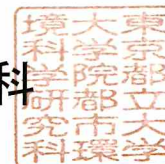 科
東京都立大学
大学院都市環
境科学研究科